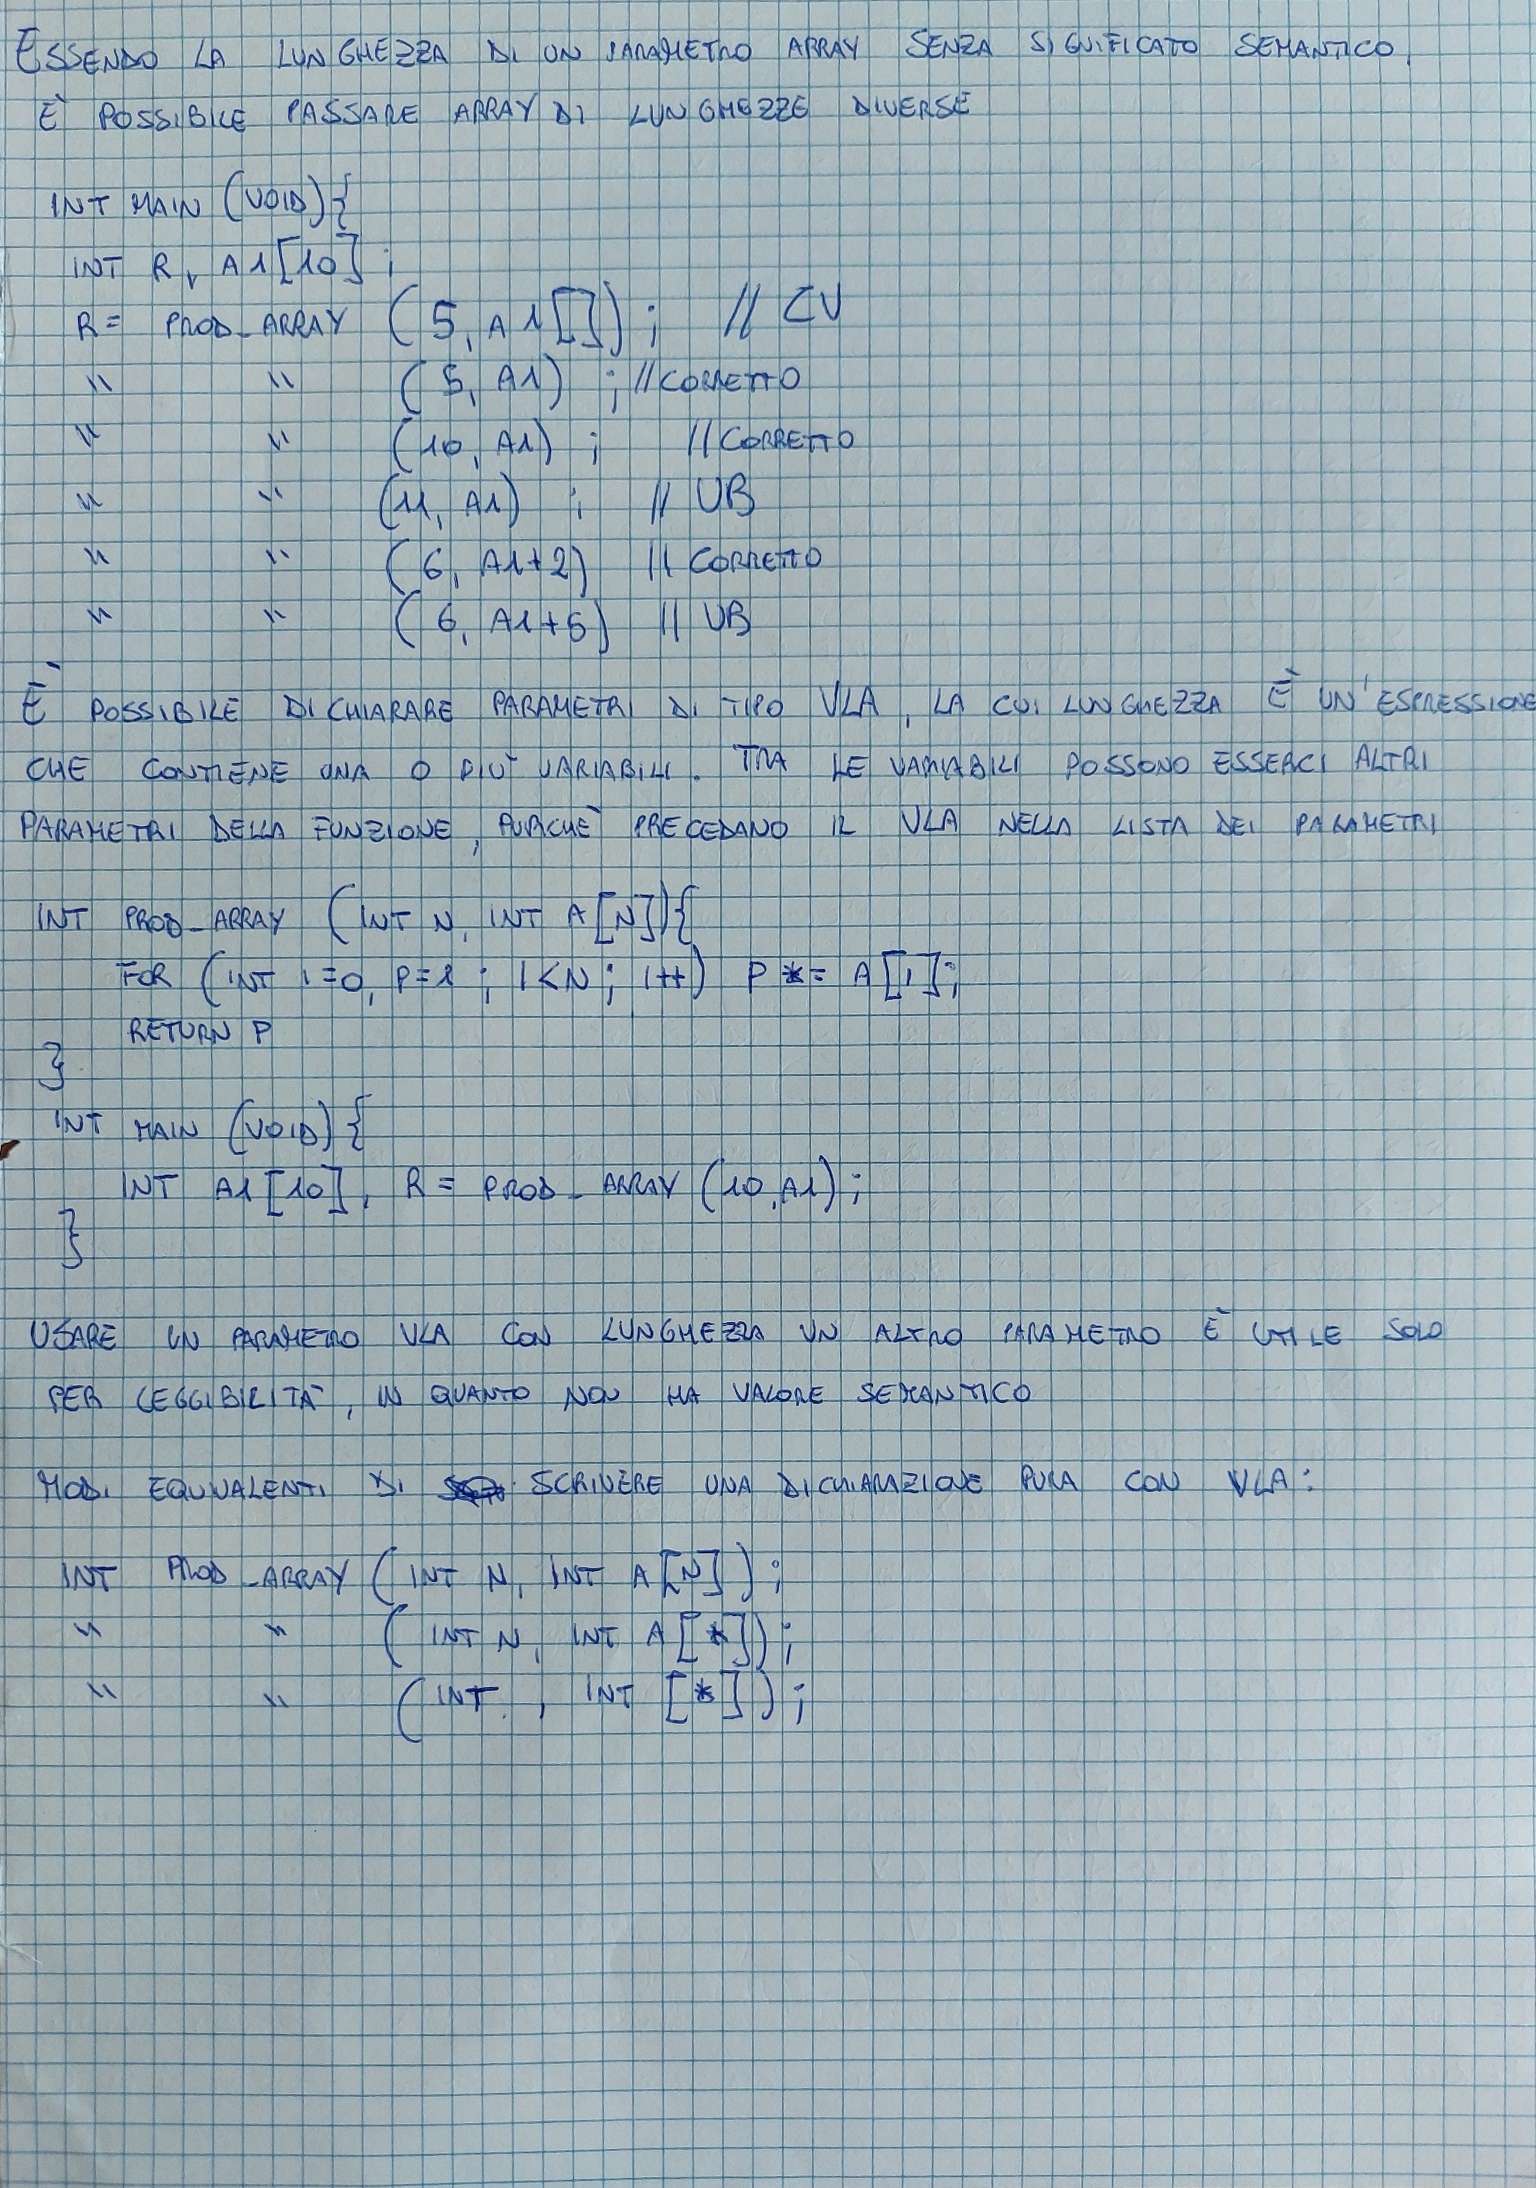 ESSENDO LA LUNGHEZZA DI UN PARAMETRO ARRAY SENZA SIGNIFICATO SEMANTICO,
È POSSIBILE PASSARE ARRAY DI LUNGHEZZE DIVERSE
INT MAIN (VOID){
INT R, A1[10];
R = PROD_ARRAY (5, A1[]); // CV
" " (5, A1) ; //CORRETTO
" " (10, A1) ; //CORRETTO
" " (11, A1) ; // UB
" " (6, A1+2) // CORRETTO
" " (6, A1+5) // UB
È POSSIBILE DICHIARARE PARAMETRI DI TIPO VLA, LA CUI LUNGHEZZA È UN'ESPRESSIONE
CHE CONTIENE UNA O PIÙ VARIABILI. TRA LE VARIABILI POSSONO ESSERCI ALTRI
PARAMETRI DELLA FUNZIONE, PURCHÈ PRECEDANO IL VLA NELLA LISTA DEI PARAMETRI
INT PROD_ARRAY (INT N, INT A[N]){
FOR (INT I=0, P=1; I<N; I++) P *= A[I];
RETURN P
}
INT MAIN (VOID){
INT A1[10], R = PROD_ARRAY (10, A1);
}
USARE UN PARAMETRO VLA CON LUNGHEZZA UN ALTRO PARAMETRO È UTILE SOLO
PER LEGGIBILITÀ, IN QUANTO NON HA VALORE SEMANTICO
MODI EQUIVALENTI DI SCRIVERE UNA DICHIARAZIONE PURA CON VLA:
INT PROD_ARRAY (INT N, INT A[N]);
" " (INT N, INT A[*]);
" " (INT , INT [*]);